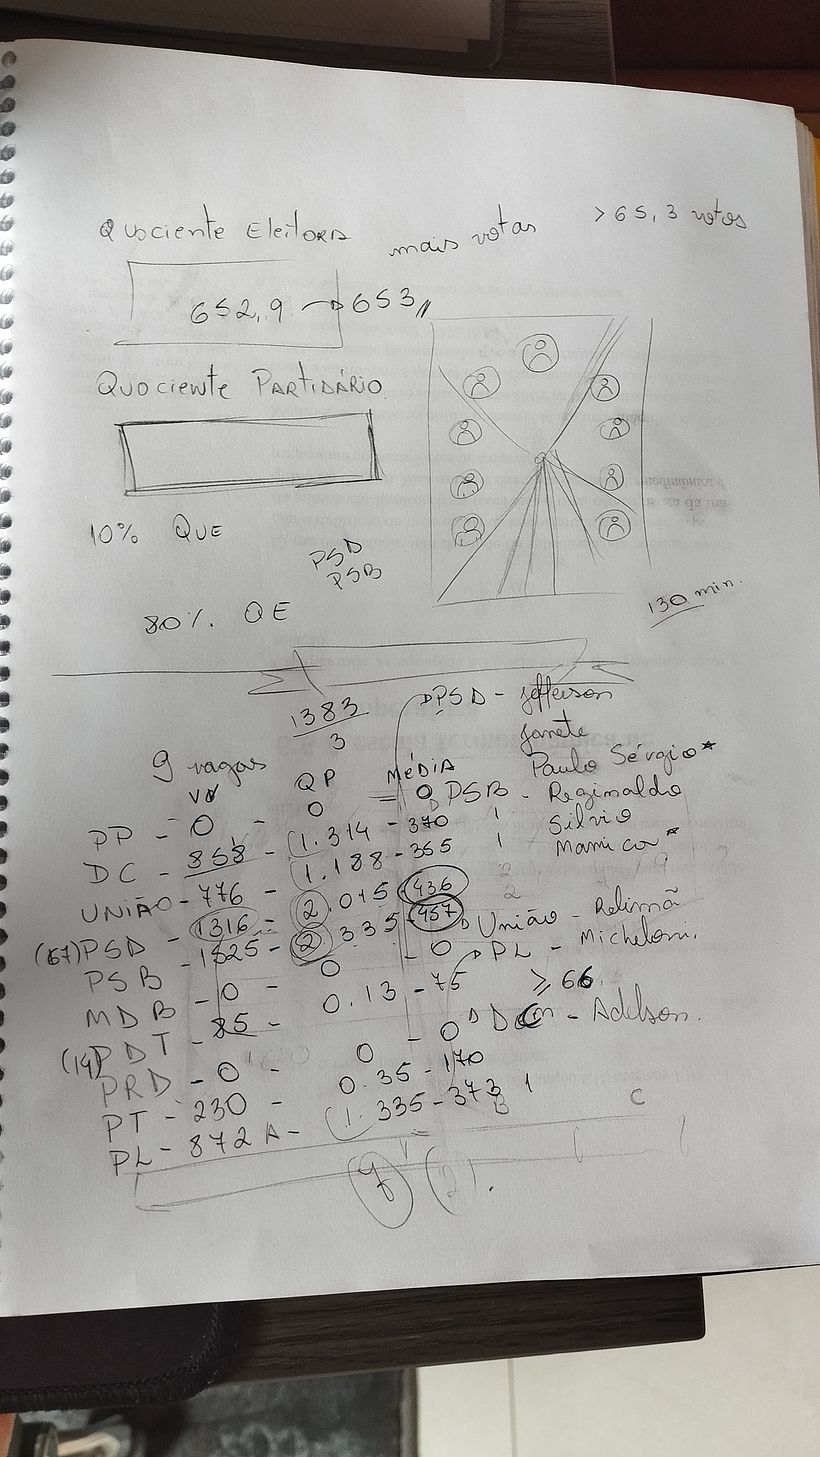 Quociente Eleitora
mais votas
> 65,3 votos
652,9 → 653,,
Quociente Partidário
10% QUE
PSD
PSB
80% QE
130 min.
1383
3
9 vagas
VV
QP
MÉDIA
PSD - Jefferson
Janete
Paulo Sérgio *
PSB - Reginaldo
Silvio
Manica *
PP - 0 - 0 = 0
DC - 858 - 1.314 - 370 1
UNIÃO - 776 - 1.188 - 365 1
(67) PSD - 1316 - 2.015 - 436 2
PSB - 1825 - 2.335 - 457 2
MDB - 0 - 0 - 0
(14) PDT - 85 - 0.13 - 75
PRD - 0 - 0 - 0
PT - 230 - 0.35 - 170
PL - 872 A - 1.335 - 373 1
União - Relimã
PL - Micheloni.
≥ 66.
DC - Adelson.
B
C
7 (2).